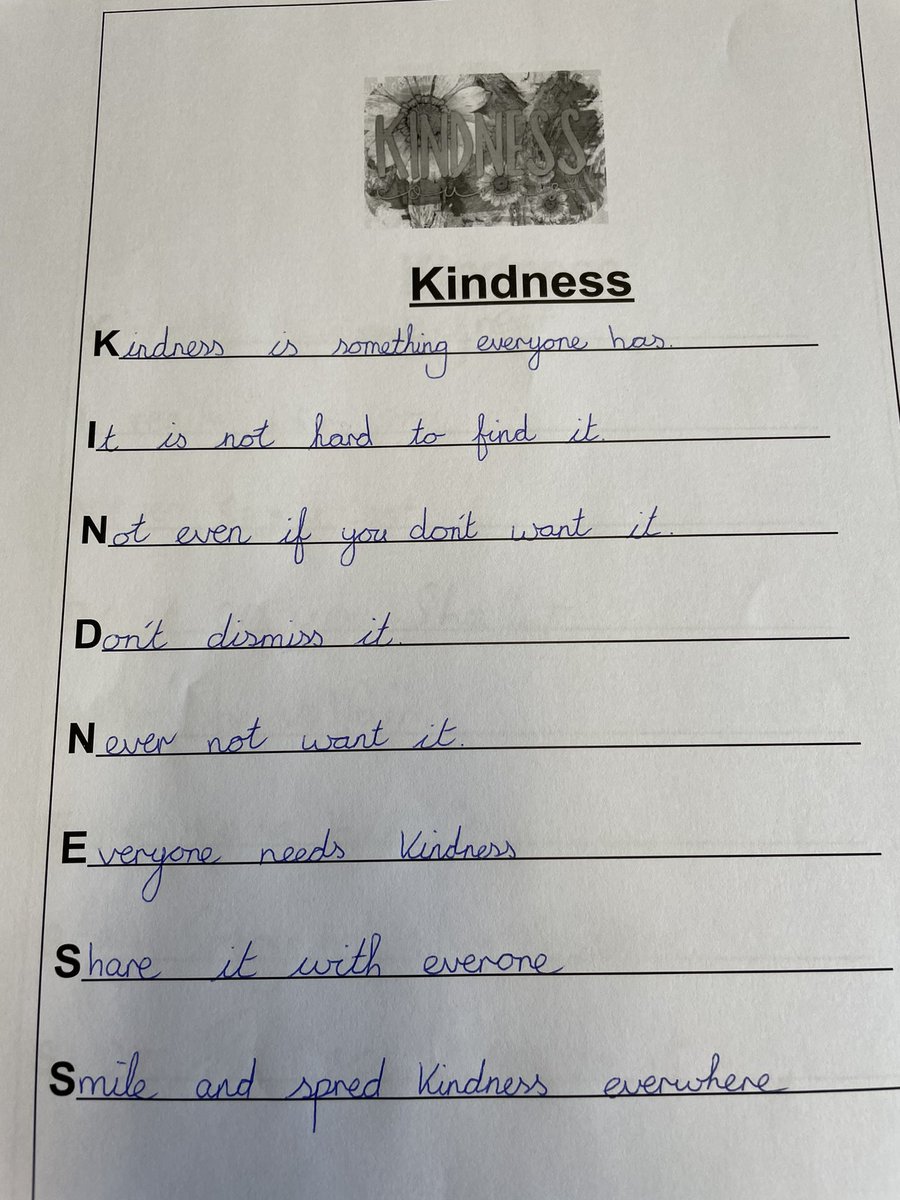 KINDNESS
Kindness
Kindness is something everyone has.
It is not hard to find it.
Not even if you don't want it.
Don't dismiss it.
Never not want it.
Everyone needs Kindness
Share it with everone
Smile and spred Kindness everwhere